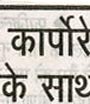 कार्पोरे
के साथ